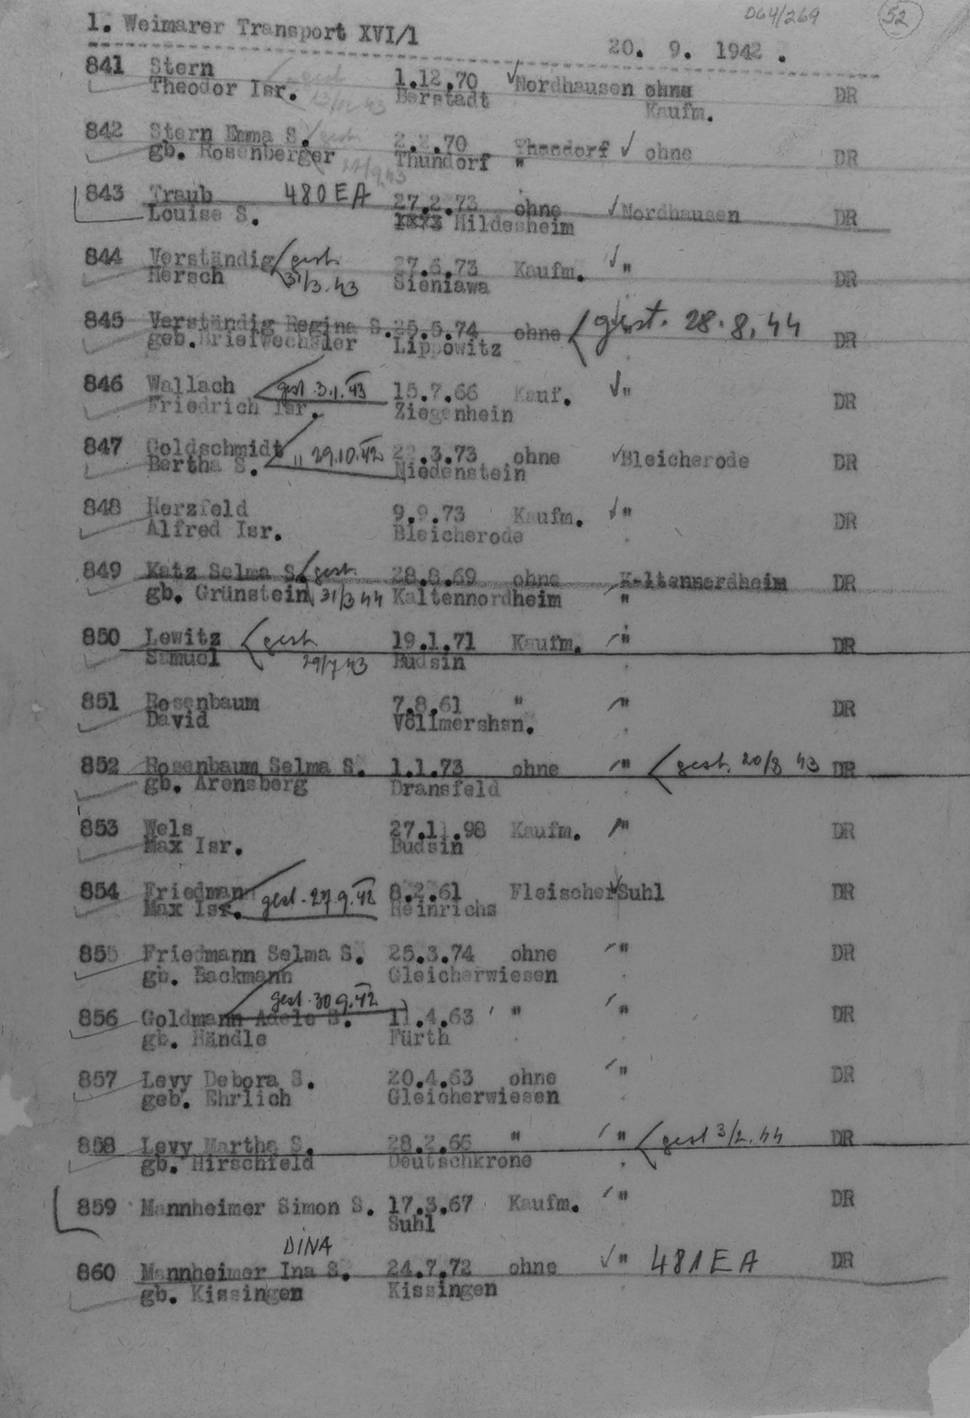 D64/269 52
1. Weimarer Transport XVI/1
20. 9. 1942.
841 Stern gest. 1.12.70 Nordhausen ohne DR
Theodor Isr. 13/12 43 Berstadt Kaufm.
842 Stern Emma S. gest. 2.2.70 Thundorf ohne DR
gb. Rosenberger Thundorf "
843 Traub 480 EA 27.2.73 ohne Nordhausen DR
Louise S. Hildesheim
844 Verständig gest. 27.6.73 Kaufm. " DR
Hersch 31/3.43 Sieniawa
845 Verständig Regina S. 25.5.74 ohne gest. 28.8.44 DR
geb. Briefwechsler Lippowitz
846 Wallach gest. 3.1.43 15.7.66 Kauf. " DR
Friedrich Isr. Ziegenhein
847 Goldschmidt " 29.10.42 22.3.73 ohne Bleicherode DR
Bertha S. Niedenstein
848 Herzfeld 9.9.73 Kaufm. " DR
Alfred Isr. Bleicherode
849 Katz Selma S. gest. 28.8.69 ohne Kaltennordheim DR
gb. Grünstein 31/3 44 Kaltennordheim "
850 Lewitz gest. 19.1.71 Kaufm. " DR
Samuel 29/7 43 Budsin
851 Rosenbaum 7.8.61 " " DR
David Völlmershsn.
852 Rosenbaum Selma S. 1.1.73 ohne " gest. 20/8 43 DR
gb. Arensberg Dransfeld
853 Wels 27.11.98 Kaufm. " DR
Max Isr. Budsin
854 Friedman gest. 27.9.42 8.2.61 Fleischer Suhl DR
Max Isr. Heinrichs
855 Friedmann Selma S. 25.3.74 ohne " DR
gb. Backmann Gleicherwiesen
gest. 30.9.42
856 Goldmann Adele S. 11.4.63 " " DR
gb. Händle Fürth
857 Levy Debora S. 20.4.63 ohne " DR
geb. Ehrlich Gleicherwiesen
858 Levy Martha S. 28.2.66 " " gest 3/2.44 DR
gb. Hirschfeld Deutschkrone
859 Mannheimer Simon S. 17.3.67 Kaufm. " DR
Suhl
DINA
860 Mannheimer Ina S. 24.7.72 ohne " 481 EA DR
gb. Kissingen Kissingen